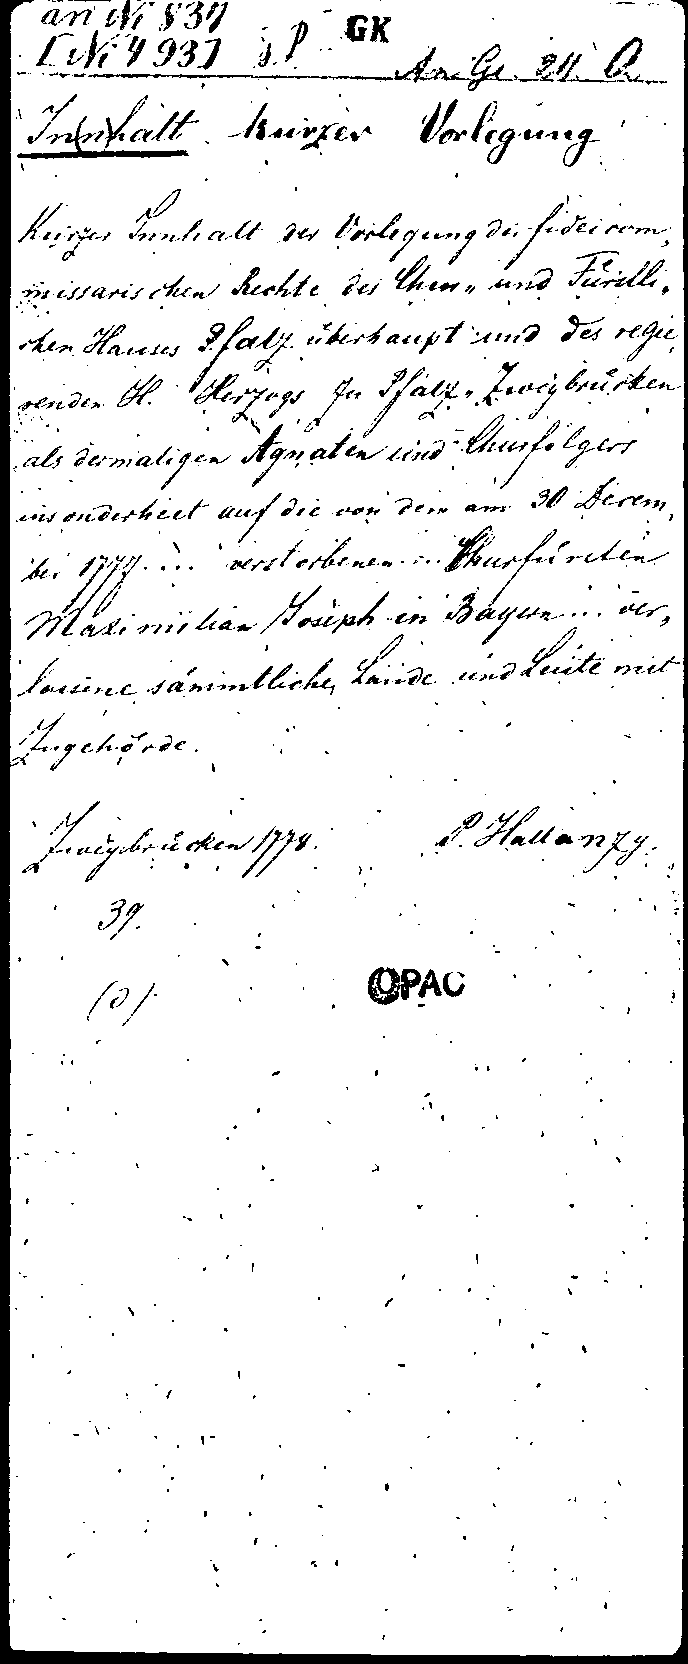 an № 834
[№ 493] GK
An. Ge. 24. Q.
Innhalt kurzer Vorlegung
Kurzer Innhalt der Vorlegung der fideicom„
missarischen Rechte des Chur„ und Fürstli„
chen Hauses Pfalz überhaupt und des regie„
renden H. Herzogs zu Pfalz„ Zweybrücken
als dermaligen Agnaten und Churfolgers
insonderheit auf die von dem am 30 Decem„
ber 1777 ... verstorbenen ... Churfürsten
Maximilian Joseph in Bayern ... ver„
lassene sämmtliche Lande und Leute mit
Zugehörde.
Zweybrücken 1778. P. Hallanzy.
39.
(d)
OPAC